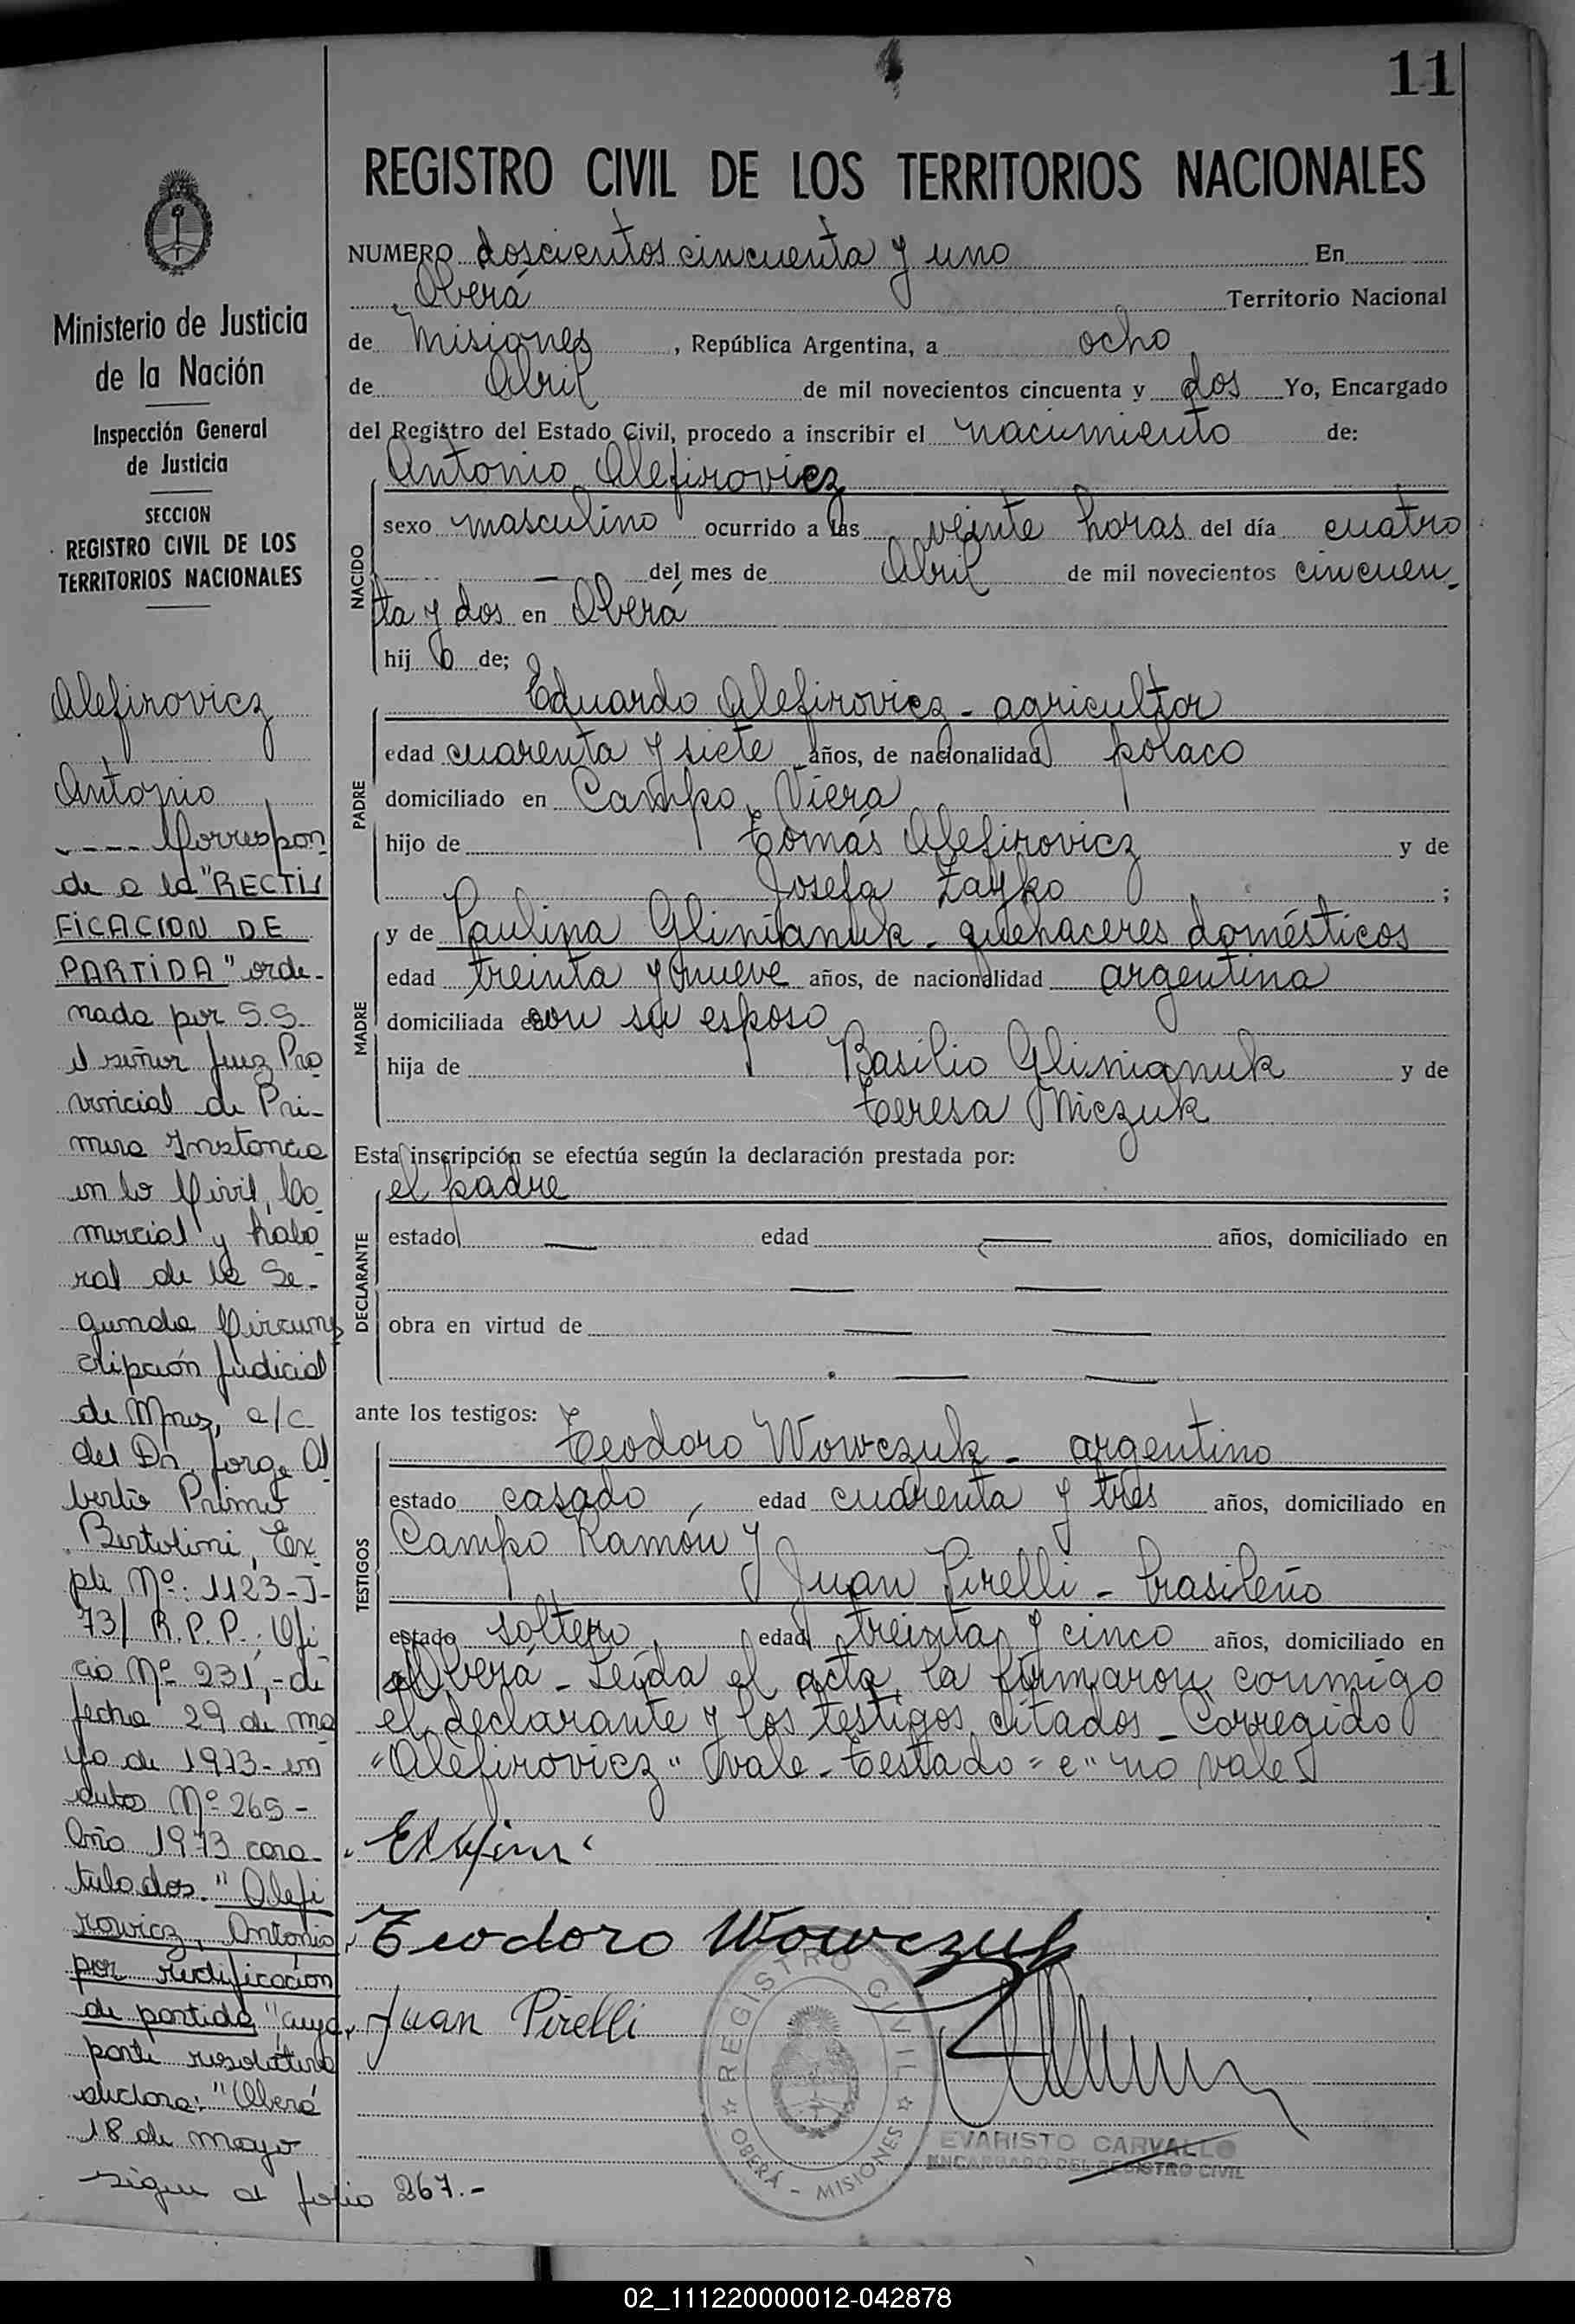 11
REGISTRO CIVIL DE LOS TERRITORIOS NACIONALES
NUMERO doscientos cincuenta y uno En
Oberá Territorio Nacional
de Misiones, República Argentina, a ocho
de Abril de mil novecientos cincuenta y dos Yo, Encargado
del Registro del Estado Civil, procedo a inscribir el nacimiento de:
Antonio Alefirovicz
NACIDO
sexo masculino ocurrido a las veinte horas del día cuatro
— del mes de Abril de mil novecientos cincuen-
ta y dos en Oberá
hijo de;
PADRE
Eduardo Alefirovicz - agricultor
edad cuarenta y siete años, de nacionalidad polaco
domiciliado en Campo Viera
hijo de Tomás Alefirovicz y de
Josefa Zayko ;
MADRE
y de Paulina Glinianuk - quehaceres domésticos
edad treinta y nueve años, de nacionalidad argentina
domiciliada con su esposo
hija de Basilio Glinianuk y de
Teresa Niczuk
Esta inscripción se efectúa según la declaración prestada por:
DECLARANTE
el padre
estado — edad — años, domiciliado en
— —
obra en virtud de — —
— —
ante los testigos:
TESTIGOS
Teodoro Wowczuk - argentino
estado casado, edad cuarenta y tres años, domiciliado en
Campo Ramón y
Juan Pirelli - brasileño
estado soltero, edad treinta y cinco años, domiciliado en
Oberá - Leída el acta, la firmaron conmigo
el declarante y los testigos citados - Corregido
"Alefirovicz" vale - Testado = e" no vale
Teodoro Wowczuk
Juan Pirelli
REGISTRO CIVIL
OBERÁ - MISIONES
EVARISTO CARVALLO
ENCARGADO DEL REGISTRO CIVIL
Ministerio de Justicia
de la Nación
Inspección General
de Justicia
SECCION
REGISTRO CIVIL DE LOS
TERRITORIOS NACIONALES
Alefirovicz
Antonio
---- Correspon-
de a la "RECTI-
FICACION DE
PARTIDA" orde-
nada por S.S.
el señor Juez Pro-
vincial de Pri-
mera Instancia
en lo Civil, Co-
mercial y Labo-
ral de la Se-
gunda Circuns-
cripción Judicial
de Mnes, a/c
del Dr. Jorge Al-
berto Primo
Bertolini, Ex-
pte Nº: 1123-J-
73/ R.P.P.; Ofi-
cio Nº 231,- de
fecha 29 de ma-
yo de 1973- en
autos Nº 265-
Año 1973 cara-
tulados. "Alefi-
rowicz, Antonio
por rectificación
de partida" cuya
parte resolutiva
declara: "Oberá
18 de mayo
sigue al folio 267.-
02_111220000012-042878